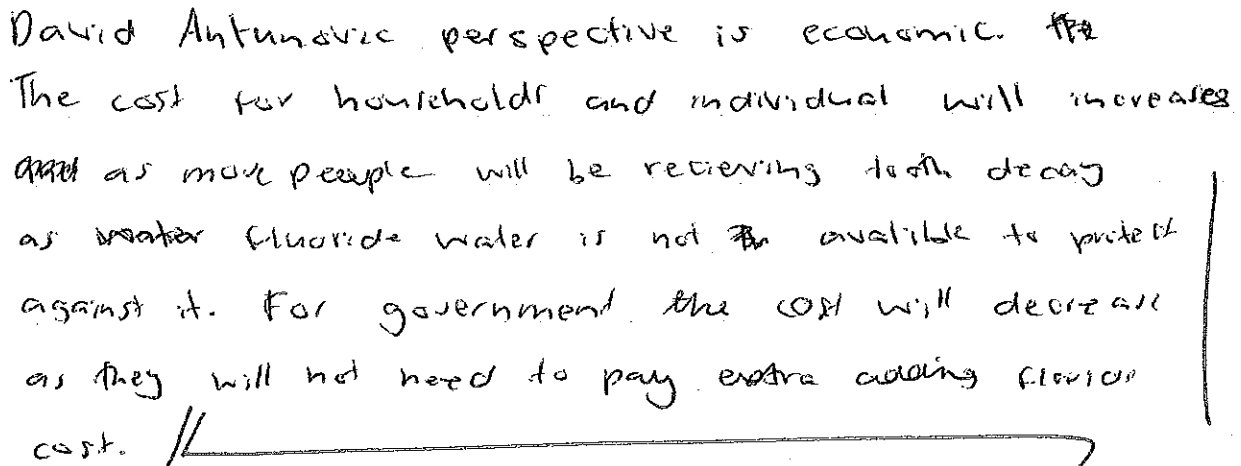 David Antunovic perspective is economic.
The cost for households and individual will increases
as more people will be recieving tooth decay
as fluoride water is not avalible to protect
against it. For government the cost will decrease
as they will not need to pay extra adding
cost.